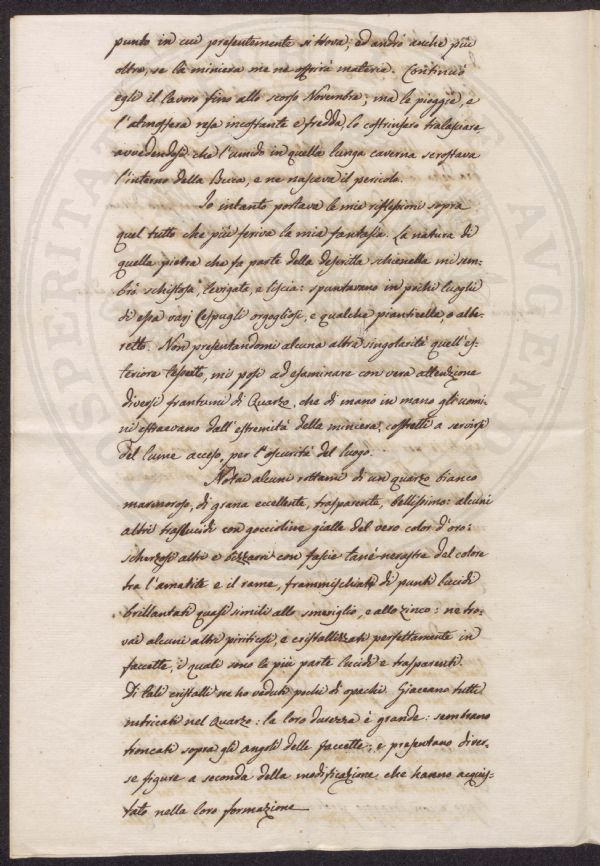 punto in cui presentemente si trova; ed andrò anche più
oltre, se la miniera me ne offrirà materia. Continuò
egli il lavoro fino allo scorso Novembre; ma le pioggie, e
l'atmosfera resa incostante e fredda, lo costrinsero tralasciare
avvedendosi che l'umido in quella lunga caverna scrostava
l'interno della Buca, e ne nasceva il pericolo.
Io intanto portava le mie riflessioni sopra
quel tutto che più feriva la mia fantasia. La natura di
quella pietra che fa parte della descritta schianella mi sem-
brò schistosa, levigata, e liscia: spuntavano in pochi luoghi
di essa varj cespugli orgogliosi, e qualche pianticella, o albe-
retto. Non presentandomi alcuna altra singolarità quell'es-
teriore, mi posi ad esaminare con vera attenzione
diversi frantumi di Quarzo, che di mano in mano gli uomi-
ni estraevano dall'estremità della miniera, costretti a servirsi
del lume acceso, per l'oscurità del luogo.
Notai alcuni rottami di un quarzo bianco
marmoroso, di grana eccellente, trasparente, bellissimo: alcuni
altri traslucidi con goccioline gialle del vero color d'oro:
scherzosi altri e bizzarri con fascie tanè nerastre del colore
tra l'amatite e il rame, frammischiati di punti lucidi
brillantati quasi simili allo smeriglio, e allo zinco: ne tro-
vai alcuni altri piriticosi, e cristallizzati perfettamente in
faccette, i quali sono la più parte lucidi e trasparenti.
Di tali cristalli ne ho veduti pochi di opachi. Giaceano tutti
nitricati nel Quarzo: la loro durezza è grande: sembrano
troncati sopra gli angoli delle faccette; e presentano diver-
se figure a seconda della modificazione che hanno acquis-
tato nella loro formazione
OSPERITAT